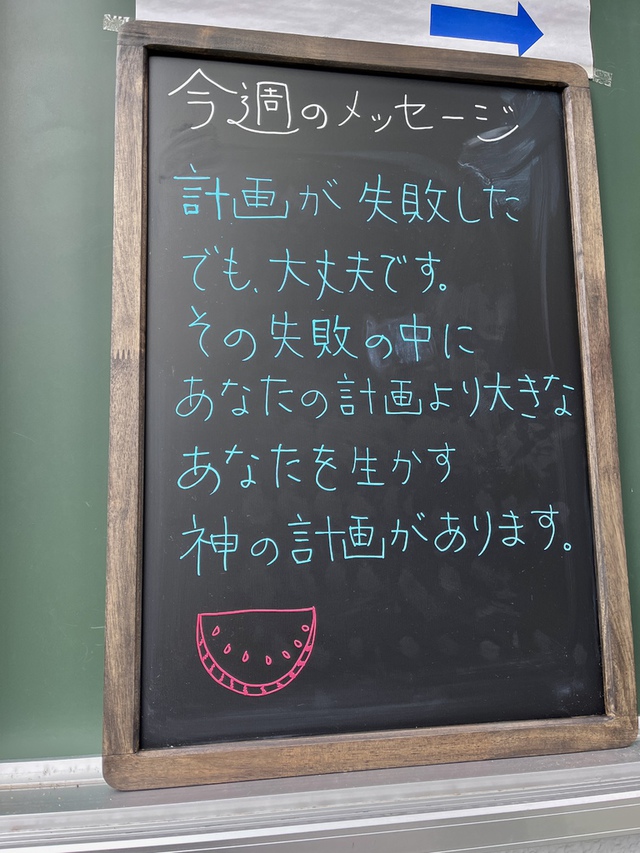 今週のメッセージ
計画が失敗した
でも、大丈夫です。
その失敗の中に
あなたの計画より大きな
あなたを生かす
神の計画があります。